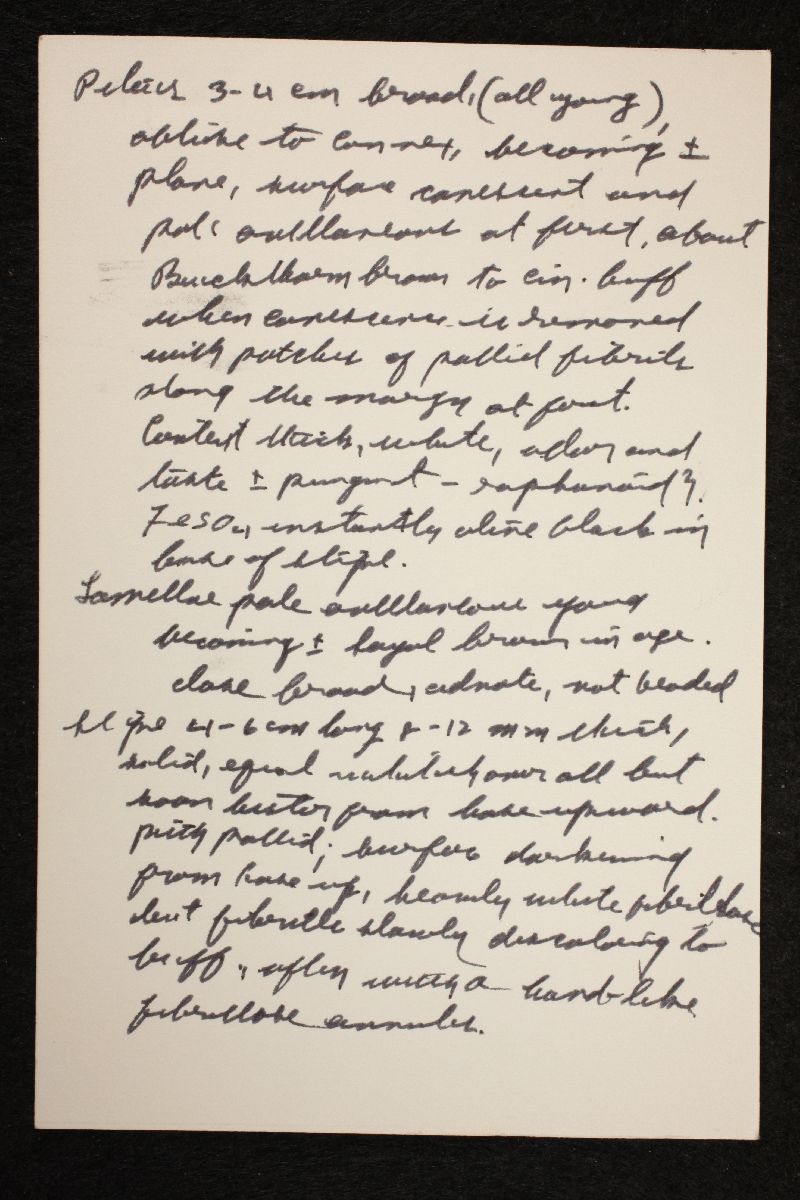 Pileus 3-4 cm broad, (all young),
obtuse to convex, becoming ±
plane, surface canescent and
pale avellaneous at first, about
Buckthorn brown to cin. buff
when canescence is removed
with patches of pallid fibrils
along the margin at first.
Context thick, white, odor and
taste ± pungent - raphanoid?.
FeSO4, instantly olive black in
base of stipe.
Lamellae pale avellaneous young
becoming ± sayal brown in age.
close broad, adnate, not beaded
stipe 4-6 cm long 8-12 mm thick,
solid, equal whitish over all but
soon bister from base upward.
pith pallid; surface darkening
from base up, heavily white fibrillose
but fibrils slowly discoloring to
buff, often with a band-like
fibrillose annulus.